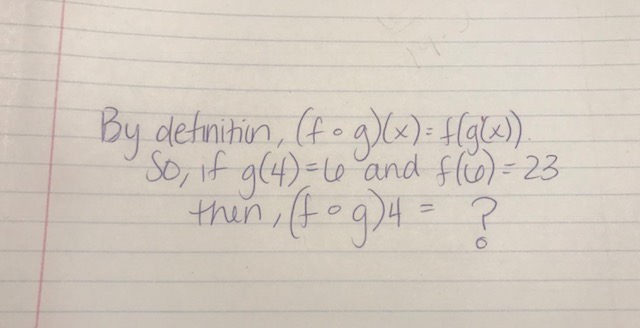 By definition, (f ∘ g)(x) = f(g(x)).
So, if g(4)=6 and f(6)=23
then, (f ∘ g)4 = ?